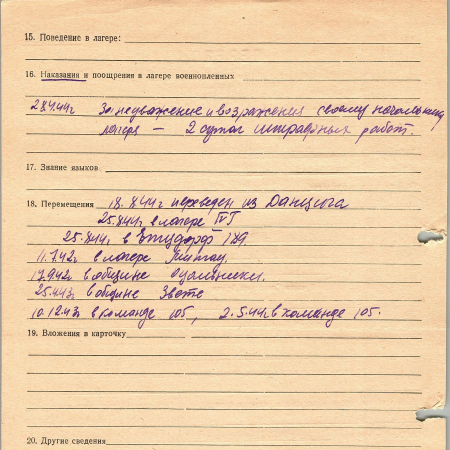 15. Поведение в лагере:
16. Наказания и поощрения в лагере военнопленных
28.4.44г За неуважение и возражения своему начальнику
лагеря — 2 суток штрафных работ.
17. Знание языков
18. Перемещения 18.844г переведен из Данцига
25.844г в лагерь
25.844г в
11.7.42г в лагере
17.9.42г в общине
25.443г в общине
10.12.43г в команде 105, 2.5.44г в команде 105.
19. Вложения в карточку
20. Другие сведения